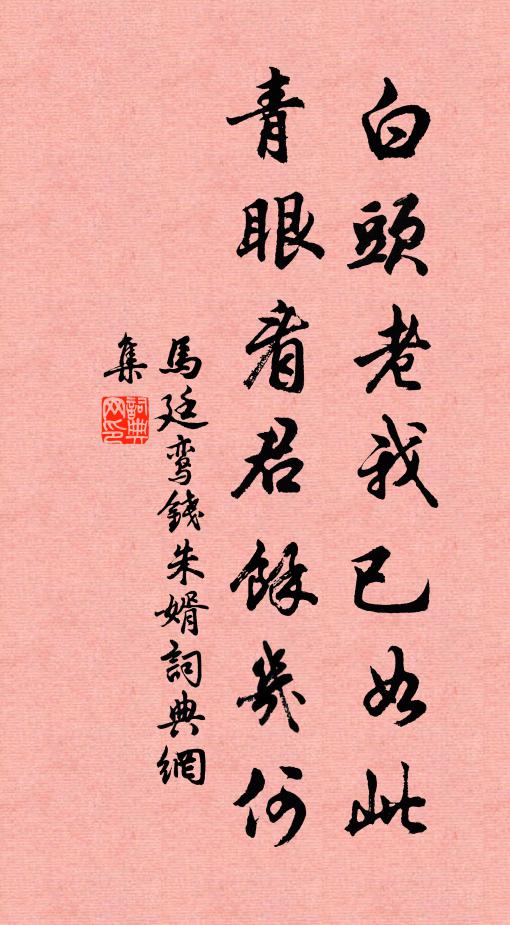 白頭老我已如此
青眼看君餘幾何
馬廷鸞錢朱婿詞典網
集
詞典網印